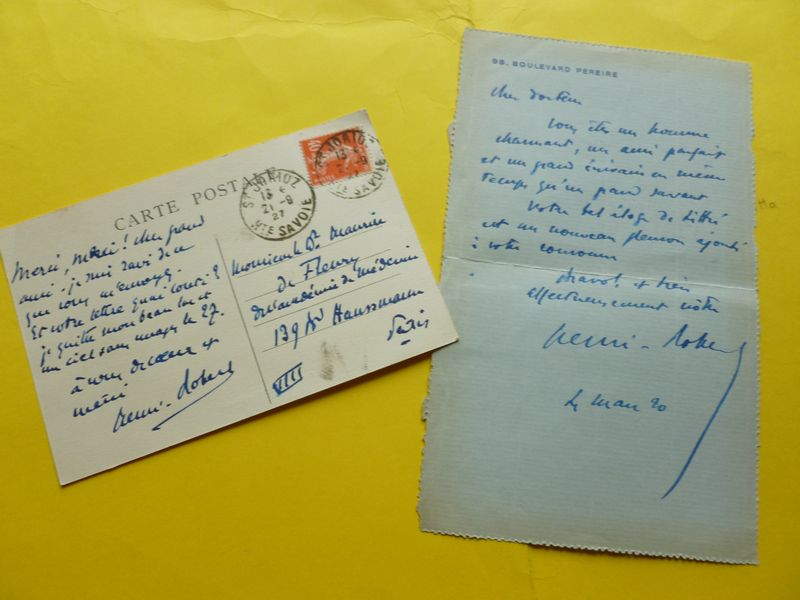 CARTE POSTALE
Merci, merci! cher grand
ami. je suis ravi de ce
que vous m'envoyez.
Et votre lettre quai Conti?
je quitte mon beau lac et
un ciel sans nuages le 27.
à vous de cœur et
merci
Henri-Robert
ST JORIOZ
13
21-9
27
HTE SAVOIE
Monsieur le Dr Maurice
de Fleury
de l'académie de Médecine
139 Bd Haussmann
Paris
VIII
98, BOULEVARD PEREIRE
Cher docteur
Vous êtes un homme
charmant, un ami parfait
et un grand écrivain en même
temps qu'un grand savant
Votre bel éloge de Littré
est un nouveau fleuron ajouté
à votre couronne
Bravo! et très
affectueusement vôtre
Henri-Robert
Mars 20